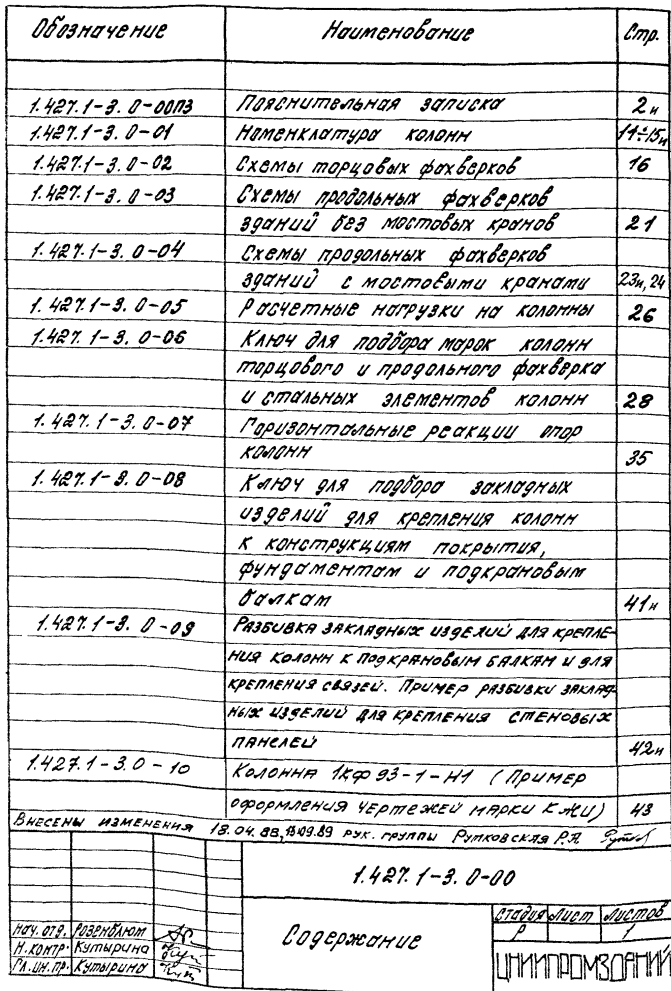 Обозначение Наименование Стр.
1.427.1-3.0-00ПЗ Пояснительная записка 2и
1.427.1-3.0-01 Номенклатура колонн 11÷15и
1.427.1-3.0-02 Схемы торцовых фахверков 16
1.427.1-3.0-03 Схемы продольных фахверков
зданий без мостовых кранов 21
1.427.1-3.0-04 Схемы продольных фахверков
зданий с мостовыми кранами 23и, 24
1.427.1-3.0-05 Расчетные нагрузки на колонны 26
1.427.1-3.0-06 Ключ для подбора марок колонн
торцового и продольного фахверка
и стальных элементов колонн 28
1.427.1-3.0-07 Горизонтальные реакции опор
колонн 35
1.427.1-3.0-08 Ключ для подбора закладных
изделий для крепления колонн
к конструкциям покрытия,
фундаментам и подкрановым
балкам 41и
1.427.1-3.0-09 Разбивка закладных изделий для крепле-
ния колонн к подкрановым балкам и для
крепления связей. Пример разбивки заклад-
ных изделий для крепления стеновых
панелей 42и
1.427.1-3.0-10 Колонна 1КФ 93-1-Н1 (Пример
оформления чертежей марки КЖИ) 43
Внесены изменения 18.04.88, 13.09.89 рук. группы Рутковская Р.А.
1.427.1-3.0-00
Нач. отд. Розенблюм
Н.контр. Кутырина
Гл.ин.пр. Кутырина
Содержание
Стадия Лист Листов
Р 1
ЦНИИПРОМЗДАНИЙ